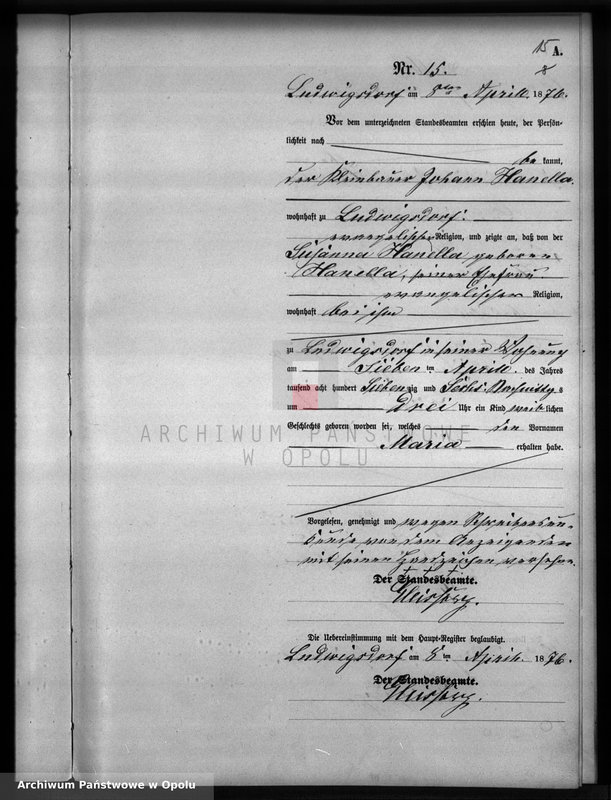 15 A.
Nr. 15.
Ludwigsdorf am 8ten April 1876.
Vor dem unterzeichneten Standesbeamten erschien heute, der Persön-
lichkeit nach
be kannt,
der Kleinbauer Johann Hanella
wohnhaft zu Ludwigsdorf
evangelischer Religion, und zeigte an, daß von der
Susanna Hanella geborenen
Hanella, seiner Ehefrau
evangelischer Religion,
wohnhaft bei ihm
zu Ludwigsdorf in seiner Wohnung
am Sieben ten April des Jahres
tausend acht hundert Siebenzig und Sechs Nachmittags
um Drei Uhr ein Kind weiblichen
Geschlechts geboren worden sei, welches den Vornamen
Maria erhalten habe.
ARCHIWUM PAŃSTWOWE
W OPOLU
Vorgelesen, genehmigt und wegen Schreibensun-
kunde von dem Anzeigenden
mit seinen Handzeichen versehen.
+ + +
Der Standesbeamte.
Die Uebereinstimmung mit dem Haupt-Register beglaubigt.
Ludwigsdorf am 8ten April 1876.
Der Standesbeamte.
Archiwum Państwowe w Opolu